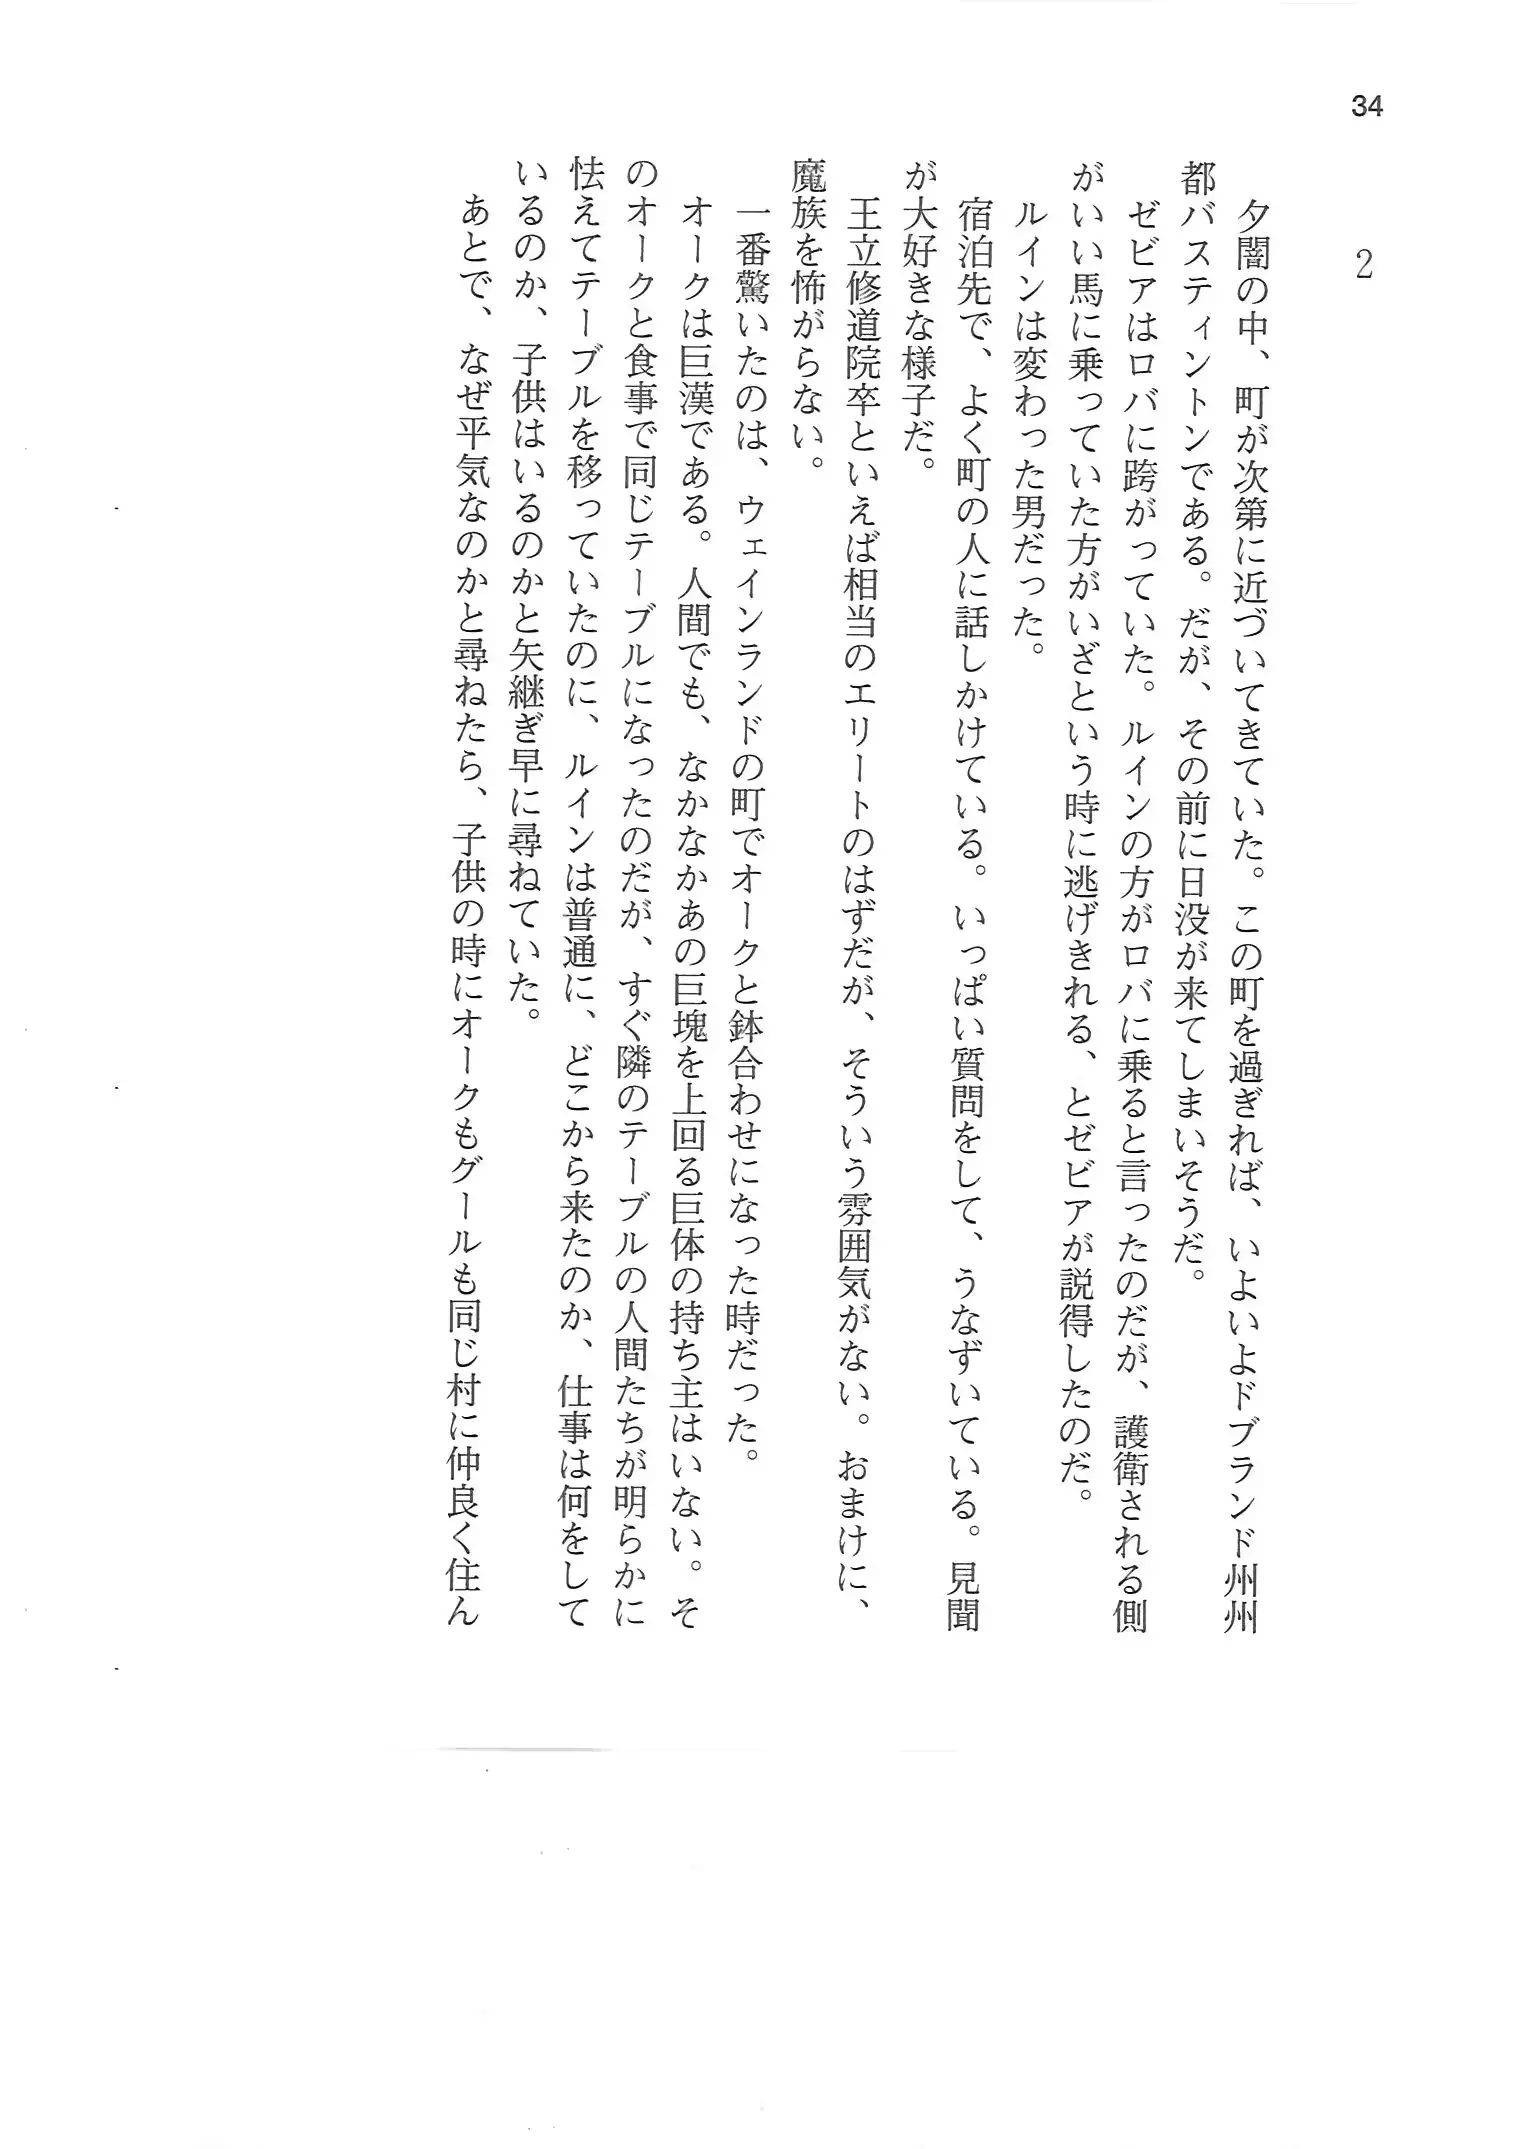 34
2
　夕闇の中、町が次第に近づいてきていた。この町を過ぎれば、いよいよドブランド州州
都バスティントンである。だが、その前に日没が来てしまいそうだ。
　ゼビアはロバに跨がっていた。ルインの方がロバに乗ると言ったのだが、護衛される側
がいい馬に乗っていた方がいざという時に逃げきれる、とゼビアが説得したのだ。
　ルインは変わった男だった。
　宿泊先で、よく町の人に話しかけている。いっぱい質問をして、うなずいている。見聞
が大好きな様子だ。
　王立修道院卒といえば相当のエリートのはずだが、そういう雰囲気がない。おまけに、
魔族を怖がらない。
　一番驚いたのは、ウェインランドの町でオークと鉢合わせになった時だった。
　オークは巨漢である。人間でも、なかなかあの巨塊を上回る巨体の持ち主はいない。そ
のオークと食事で同じテーブルになったのだが、すぐ隣のテーブルの人間たちが明らかに
怯えてテーブルを移っていたのに、ルインは普通に、どこから来たのか、仕事は何をして
いるのか、子供はいるのかと矢継ぎ早に尋ねていた。
　あとで、なぜ平気なのかと尋ねたら、子供の時にオークもグールも同じ村に仲良く住ん